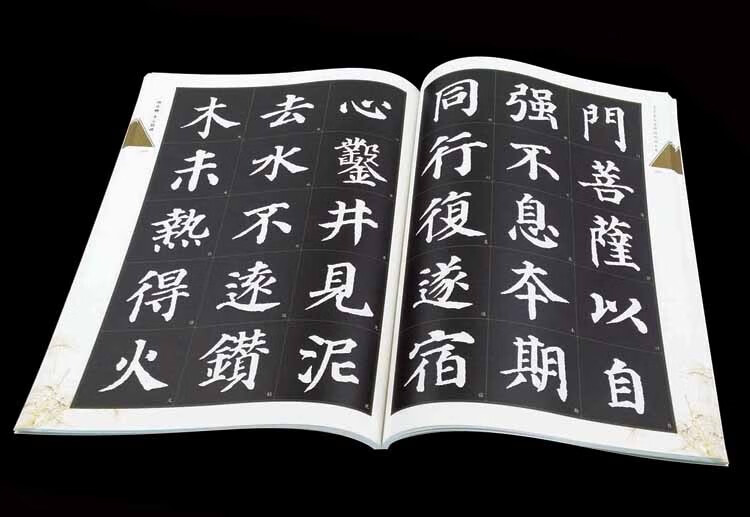 門菩薩以自
强不息本期
同行復遂宿
心鑿井見泥
去水不遠鑽
木未熱得火